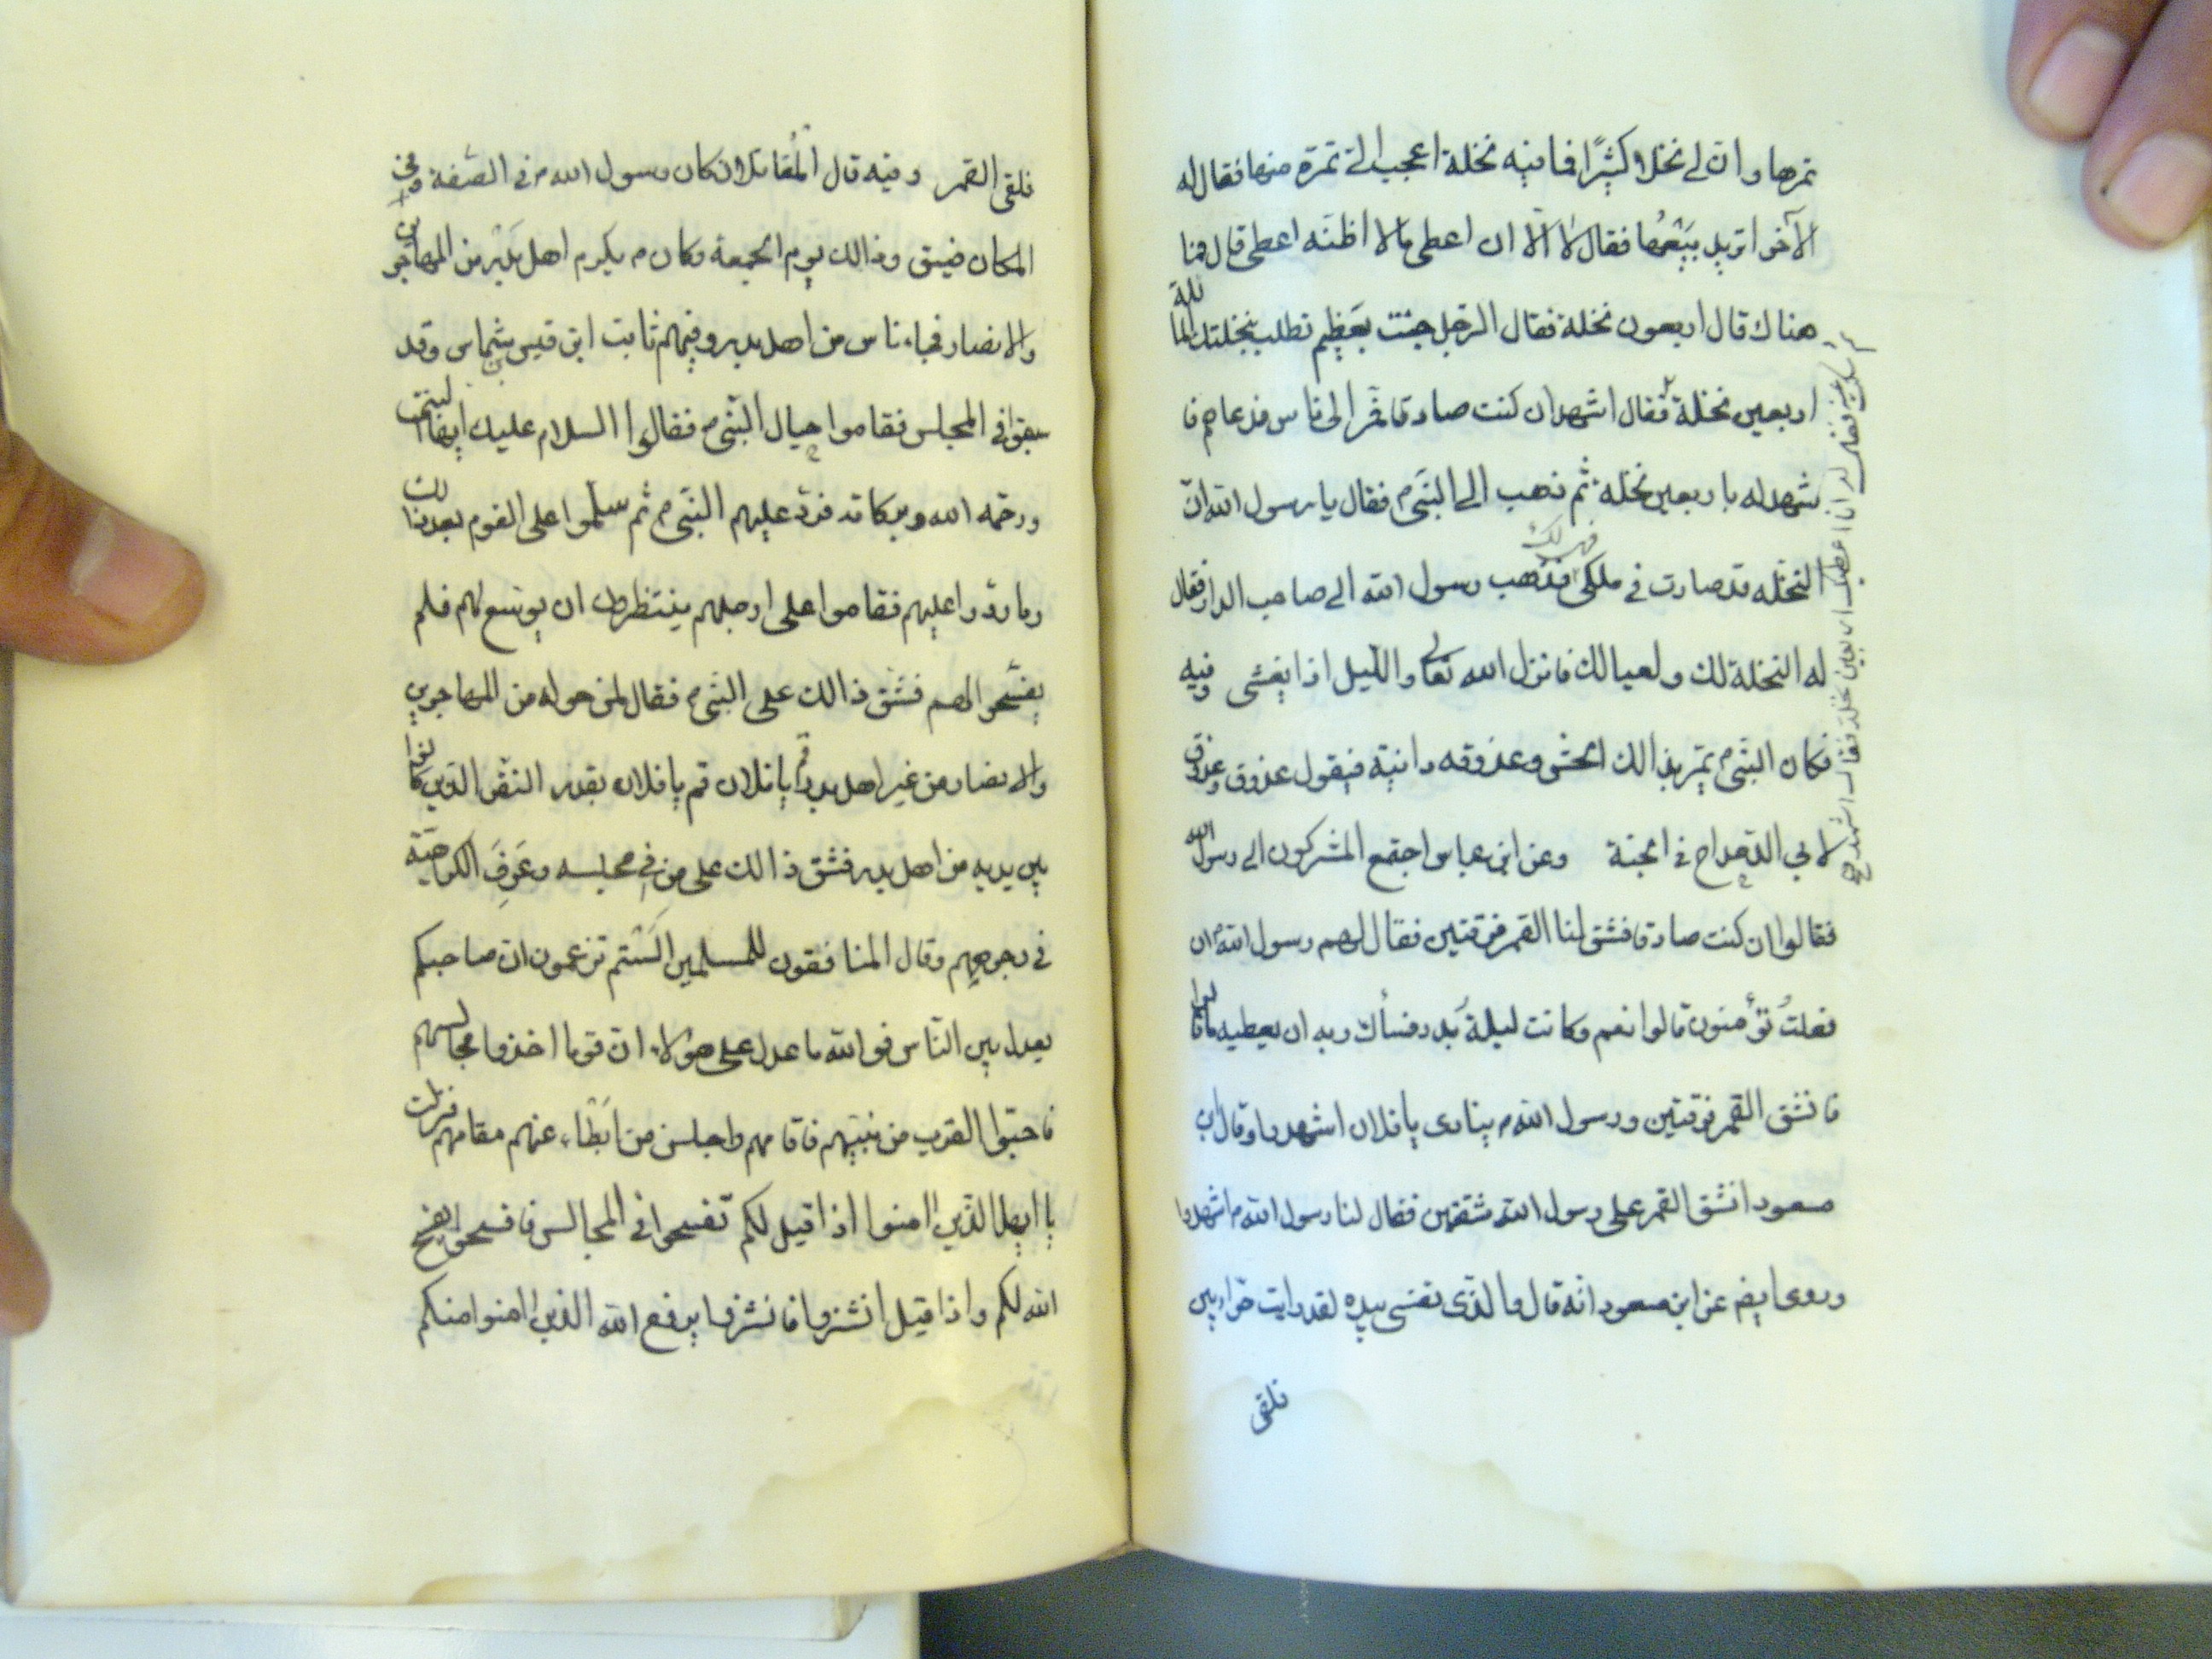 تمرها وان لي نخلا كثيرًا فما فيه نخلة اعجب الي تمرة منها فقال له
الآخر اتريد بيعها فقال لا الّا ان اعطى مالا اظنه اعطى قال فما
هناك قال اربعون نخلة فقال الرجل جئت بعظيم تطلب بنخلتك المائلة
اربعين نخلة فقال اشهد ان كنت صادقا فمّر الى ناس فدعاهم فا
شهد له باربعين نخلة ثم ذهب الى النبي م فقال يا رسول الله انّ
النخله قد صارت في ملكي فهي لك فذهب رسول الله الى صاحب الدار فقال
له النخلة لك ولعيالك فانزل الله تعالى والليل اذا يغشى وفيه
فكان النبي م يمّر بذالك الحش وعذوقه دانية فيقول عذوق وعذوق
لابي الدحداح في الجنة وعن ابن عباس اجتمع المشركون الى رسول الله
فقالوا ان كنت صادقا فشق لنا القمر فرقتين فقال لهم رسول الله م ان
فعلتُ تؤمنون قالوا نعم وكانت ليلة بدر فسأل ربه ان يعطيه ما قالوا
فانشق القمر فرقتين ورسول الله م ينادى يا فلان اشهدوا وقال ابن
مسعود انشق القمر على رسول الله شقتين فقال لنا رسول الله م اشهدوا
وروى ايض عن ابن مسعود انّه قال والذى نفسى بيده لقد رايت حراء بين
فلقى
فلقى القمر وفيه قال المُقاتلان كان رسول الله م في الصّفة وفي
المكان ضيق وذالك يوم الجمعة وكان م يكرم اهل بدر من المهاجرين
والانصار فجاء ناس من اهل بدر وفيهم ثابت ابن قيس بن شماس وقد
سبقوا في المجلس فقاموا حيال النّبي م فقالوا السلام عليك ايها النبي
ورحمه الله وبركاته فردّ عليهم النّبي م ثم سلّموا على القوم بعد ذالك
وما ردّوا عليهم فقاموا على ارجلهم ينتظرون ان يوسّع لهم فلم
يفسّحوا لهم فشق ذالك على النّبي م فقال لمن حوله من المهاجرين
والانصار من غير اهل بدر قم يا فلان قم يا فلان بقدر النفر الذين كانوا
بين يديه من اهل بدر فشق ذالك على من في مجلسه وعَرِفَ الكراهيّة
في وجوههم وقال المنافقون للمسلمين الَستم تزعمون ان صاحبكم
يعدل بين النّاس فوالله ما عدل على هؤلاء انّ قوما اخذوا مجالسهم
فاحبّوا القرب من نبيّهم فاقامهم واجلس من ابَطْاء عنهم مقامهم فنزلت
يا ايها الذين امنوا اذا قيل لكم تفسحوا في المجالس فافسحوا يفسح
الله لكم واذا قيل انشزوا فانشزوا يرفع الله الذين امنوا منكم